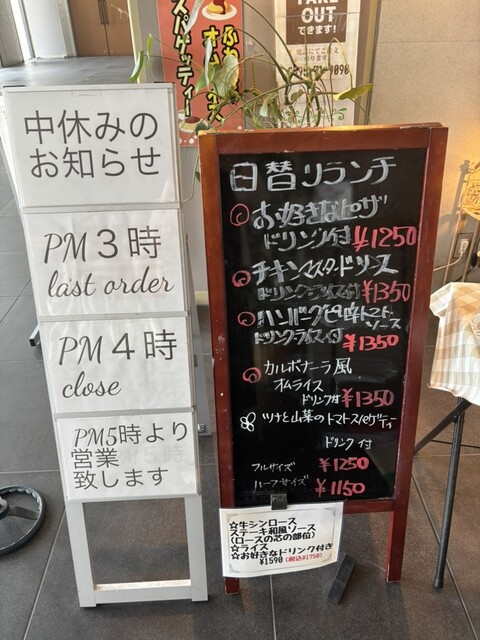 中休みの
お知らせ
PM3時
last order
PM4時
close
PM5時より
営業
致します
TAKE
OUT
できます!
日替りランチ
お好きなピザ
ドリンク付 ¥1250
チキンマスタードソース
ドリンク・ライス付 ¥1350
ハンバーグ
ソース
ドリンク・ライス付
¥1350
カルボナーラ風
オムライス
ドリンク付 ¥1350
ツナと山菜のトマトスパゲティー
ドリンク付
フルサイズ ¥1250
ハーフサイズ ¥1150
☆牛シンロース
ステーキ和風ソース
(ロースの芯の部位)
☆ライス
☆お好きなドリンク付き
¥1590(税込¥1750)